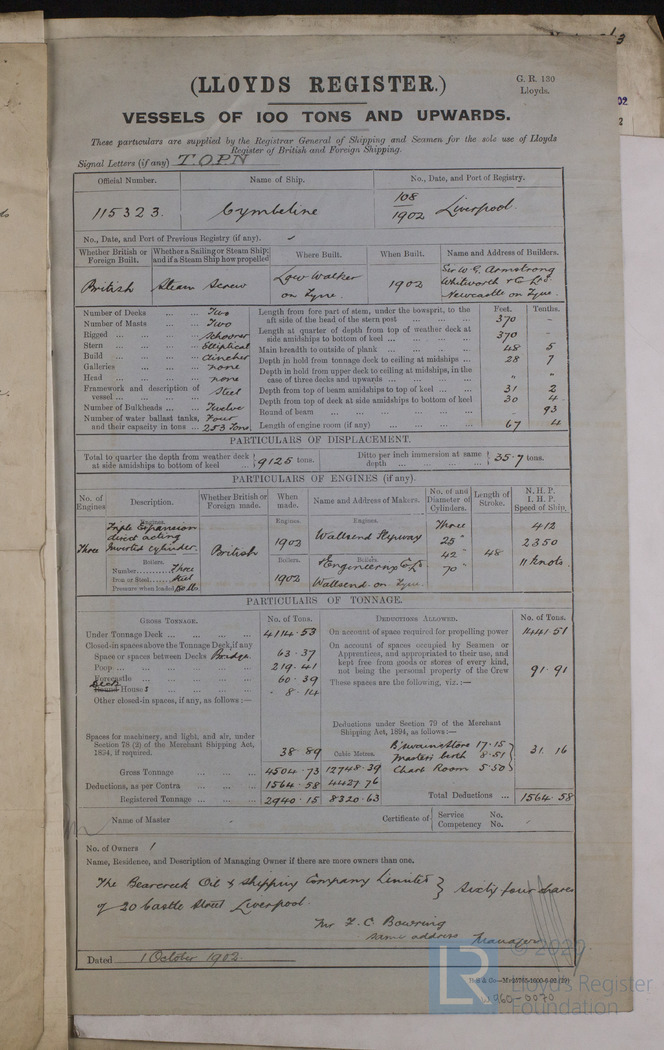 (LLOYDS REGISTER.)
G. R. 130
Lloyds.
VESSELS OF 100 TONS AND UPWARDS.
These particulars are supplied by the Registrar General of Shipping and Seamen for the sole use of Lloyds
Register of British and Foreign Shipping.
Signal Letters (if any) T.O.P.N
Official Number. Name of Ship. No., Date, and Port of Registry.
115323. Cymbeline 108/1902 Liverpool.
No., Date, and Port of Previous Registry (if any).
Whether British or Foreign Built. Whether a Sailing or Steam Ship; and if a Steam Ship how propelled Where Built. When Built. Name and Address of Builders.
British Steam Screw Low Walker on Tyne. 1902 Sir W. G. Armstrong Whitworth & Co Ld. Newcastle on Tyne.
Number of Decks ... ... Two
Number of Masts ... ... Two
Rigged ... ... Schooner
Stern ... ... Elliptical
Build ... ... Clincher
Galleries ... ... none
Head ... ... none
Framework and description of vessel ... ... Steel
Number of Bulkheads ... ... Twelve
Number of water ballast tanks, and their capacity in tons ... Four 253 Tons.
Feet. Tenths.
Length from fore part of stem, under the bowsprit, to the aft side of the head of the stern post ... 370 -
Length at quarter of depth from top of weather deck at side amidships to bottom of keel ... 370 -
Main breadth to outside of plank ... 48 5
Depth in hold from tonnage deck to ceiling at midships ... 28 7
Depth in hold from upper deck to ceiling at midships, in the case of three decks and upwards ... " "
Depth from top of beam amidships to top of keel ... 31 2
Depth from top of deck at side amidships to bottom of keel 30 4
Round of beam ... - 93
Length of engine room (if any) ... 67 4
PARTICULARS OF DISPLACEMENT.
Total to quarter the depth from weather deck at side amidships to bottom of keel ... 9125 tons. Ditto per inch immersion at same depth ... 35.7 tons.
PARTICULARS OF ENGINES (if any).
No. of Engines Description. Whether British or Foreign made. When made. Name and Address of Makers. No. of and Diameter of Cylinders. Length of Stroke. N. H. P. I. H. P. Speed of Ship.
Engines. Engines. Engines.
Three Triple Expansion direct acting Inverted cylinder. British 1902 Wallsend Slipway Three 25" 42" 70" 48 412 2350 11 knots.
Boilers. Boilers. Boilers.
Number ... Three
Iron or Steel ... Steel
Pressure when loaded 180 lbs
1902 & Engineering Co Ld Wallsend on Tyne.
PARTICULARS OF TONNAGE.
GROSS TONNAGE. No. of Tons.
Under Tonnage Deck ... ... 4114.53
Closed-in spaces above the Tonnage Deck, if any
Space or spaces between Decks Bridge. 63.37
Poop ... ... 219.41
Forecastle ... ... 60.39
Round Houses Deck ... ... 8.14
Other closed-in spaces, if any, as follows:—
Spaces for machinery, and light, and air, under Section 78 (2) of the Merchant Shipping Act, 1894, if required. 38.89
Cubic Metres.
Gross Tonnage ... ... 4504.73 12748.39
Deductions, as per Contra ... 1564.58 4427.76
Registered Tonnage ... ... 2940.15 8320.63
DEDUCTIONS ALLOWED. No. of Tons.
On account of space required for propelling power 1441.51
On account of spaces occupied by Seamen or Apprentices, and appropriated to their use, and kept free from goods or stores of every kind, not being the personal property of the Crew 91.91
These spaces are the following, viz.:—
Deductions under Section 79 of the Merchant Shipping Act, 1894, as follows:—
B'swains Store 17.15
Masters berth 8.51
Chart Room 5.50
31.16
Total Deductions ... 1564.58
Name of Master Certificate of Service No. Competency No.
No. of Owners 1
Name, Residence, and Description of Managing Owner if there are more owners than one.
The Bearcreek Oil & Shipping Company Limited } Sixty four shares
of 20 Castle Street Liverpool.
Mr F. C. Bowring
same address Manager
Dated 1 October 1902.
© 202
LR
Lloyd's Register
Foundation
1960-0070